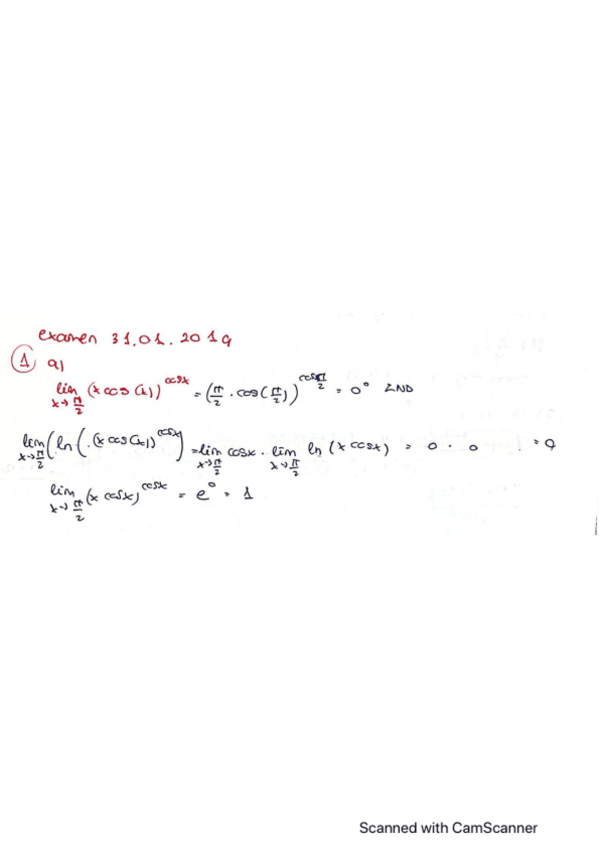 examen 31.01.2019
① a)
lim x→π/2 (x cos(x))^cosx = (π/2 · cos(π/2))^cos π/2 = 0⁰ IND
lim x→π/2 (ln(.(x cos(x))^cosx) = lim x→π/2 cosx · lim x→π/2 ln(x cosx) = 0 · 0 = 0
lim x→π/2 (x cosx)^cosx = e⁰ = 1
Scanned with CamScanner